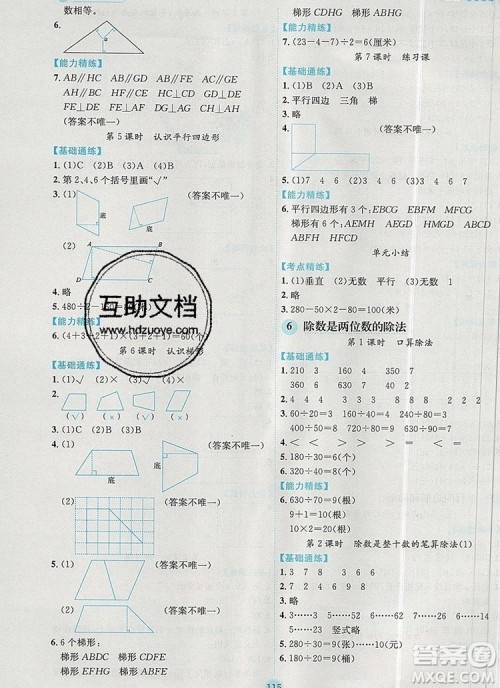 数相等。
6.
【能力精练】
7. AB∥HC AB∥GD GD∥HC
AC∥FH AC∥BD BD∥FH
FE⊥DE AF⊥DF AG⊥DG
FE⊥AF DE∥AF AG⊥AC
（答案不唯一）
第5课时 认识平行四边形
【基础通练】
1. (1)C (2)B (3)A (4)B
2. 第2、4、6个括号里画“√”
3. (1) （答案不唯一）
(2)
A
D C
4. 略
5. 480÷2
【能力精练】
6. (4+3
+2+1)=60(个)
第6课时 认识梯形
【基础通练】
1. (1)√ (2)× (3)× (4)√
2.
(√) (×) (×) (√)
3. 略
4. (1)
底 底
（答案不唯一）
(2) （答案不唯一）
5. (1)
（答案不唯一）
(2)
（答案不唯一）
6. 6个梯形：
梯形 ABDC 梯形 CDFE
梯形 ABFE 梯形 EFHG
梯形 CDHG 梯形 ABHG
【能力精练】
7. (23-4-7)÷2=6(厘米)
第7课时 练习课
【基础通练】
1. (1)B (2)A (3)C
2. 平行四边 三角 梯
3. 略
4.
5. (1)3 4 6 7 (2)1 3 4 6 7
【能力精练】
6. 平行四边形有3个：EBCG EBFM MFCG
梯形有6个：AEMH AEGD HMGD ABFH
ABCD HFCD
单元小结
【考点精练】
1. (1)垂直 (2)无数 平行 (3)无数 1
2. 略
3. 280-60-80-60=80(厘米)
6 除数是两位数的除法
第1课时 口算除法
【基础通练】
1. 210 3 160 4 350 7
2. 310 5 490 7 360 6
3. 60÷20=3 80÷40=2 60÷30=2
4. < < < < > < < >
5. 180÷30=6(个)
6. 320÷40=8(个)
【能力精练】
7. 630÷70=9(根)
9+1=10(根)
8. 500÷50=10(根)
10×2=20(根)
第2课时 除数是整十数的笔算除法(1)
【基础通练】
1. 3 7 8 3 8 8 6
2. 7 4 8 9 4 8 8 6
3. 略
4. 3……5 5……22 4……32
6……15 竖式略
5. 290÷30=9(张)……20(元)
6. 310÷60=5(段)……10(米)
互助文档
www.hdzuoye.com
115
答案圈
MXQE.COM